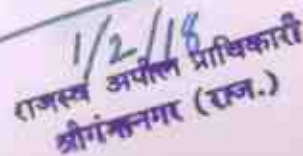 1/2/18
राजस्व अपील प्राधिकारी
श्रीगंगानगर (राज.)